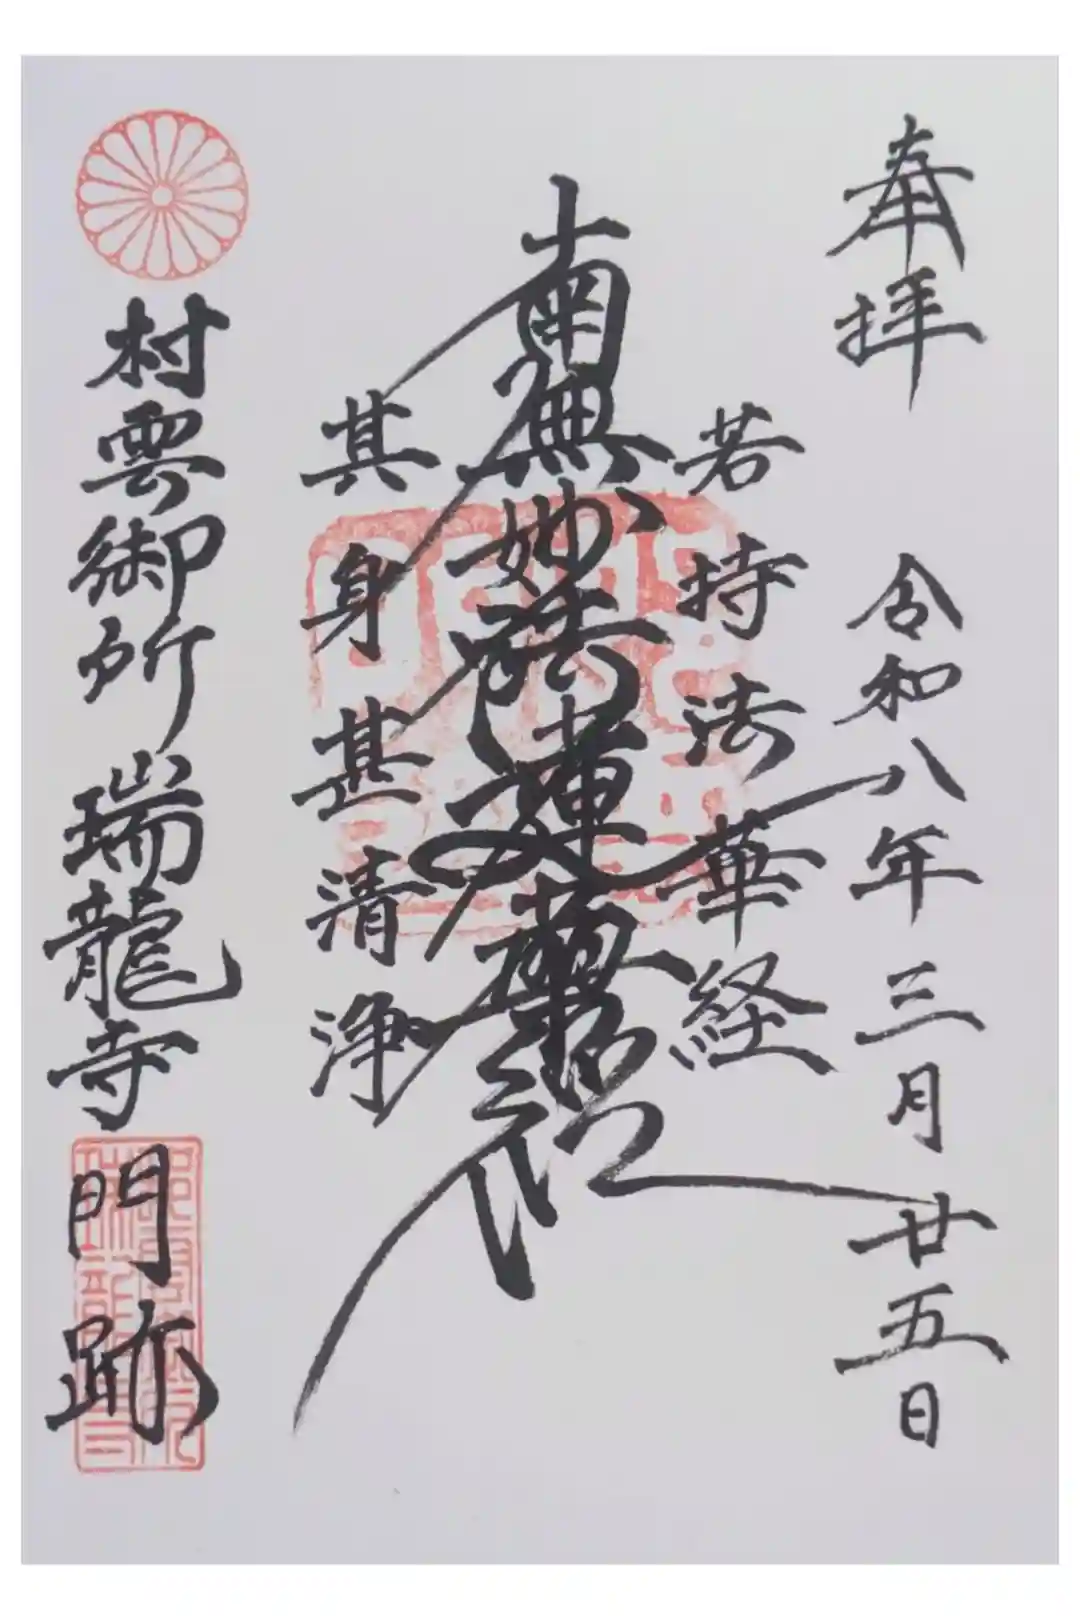 奉拝 令和八年三月廿五日
若持法華経
南無妙法蓮華経
其身甚清浄
村雲御所瑞龍寺門跡